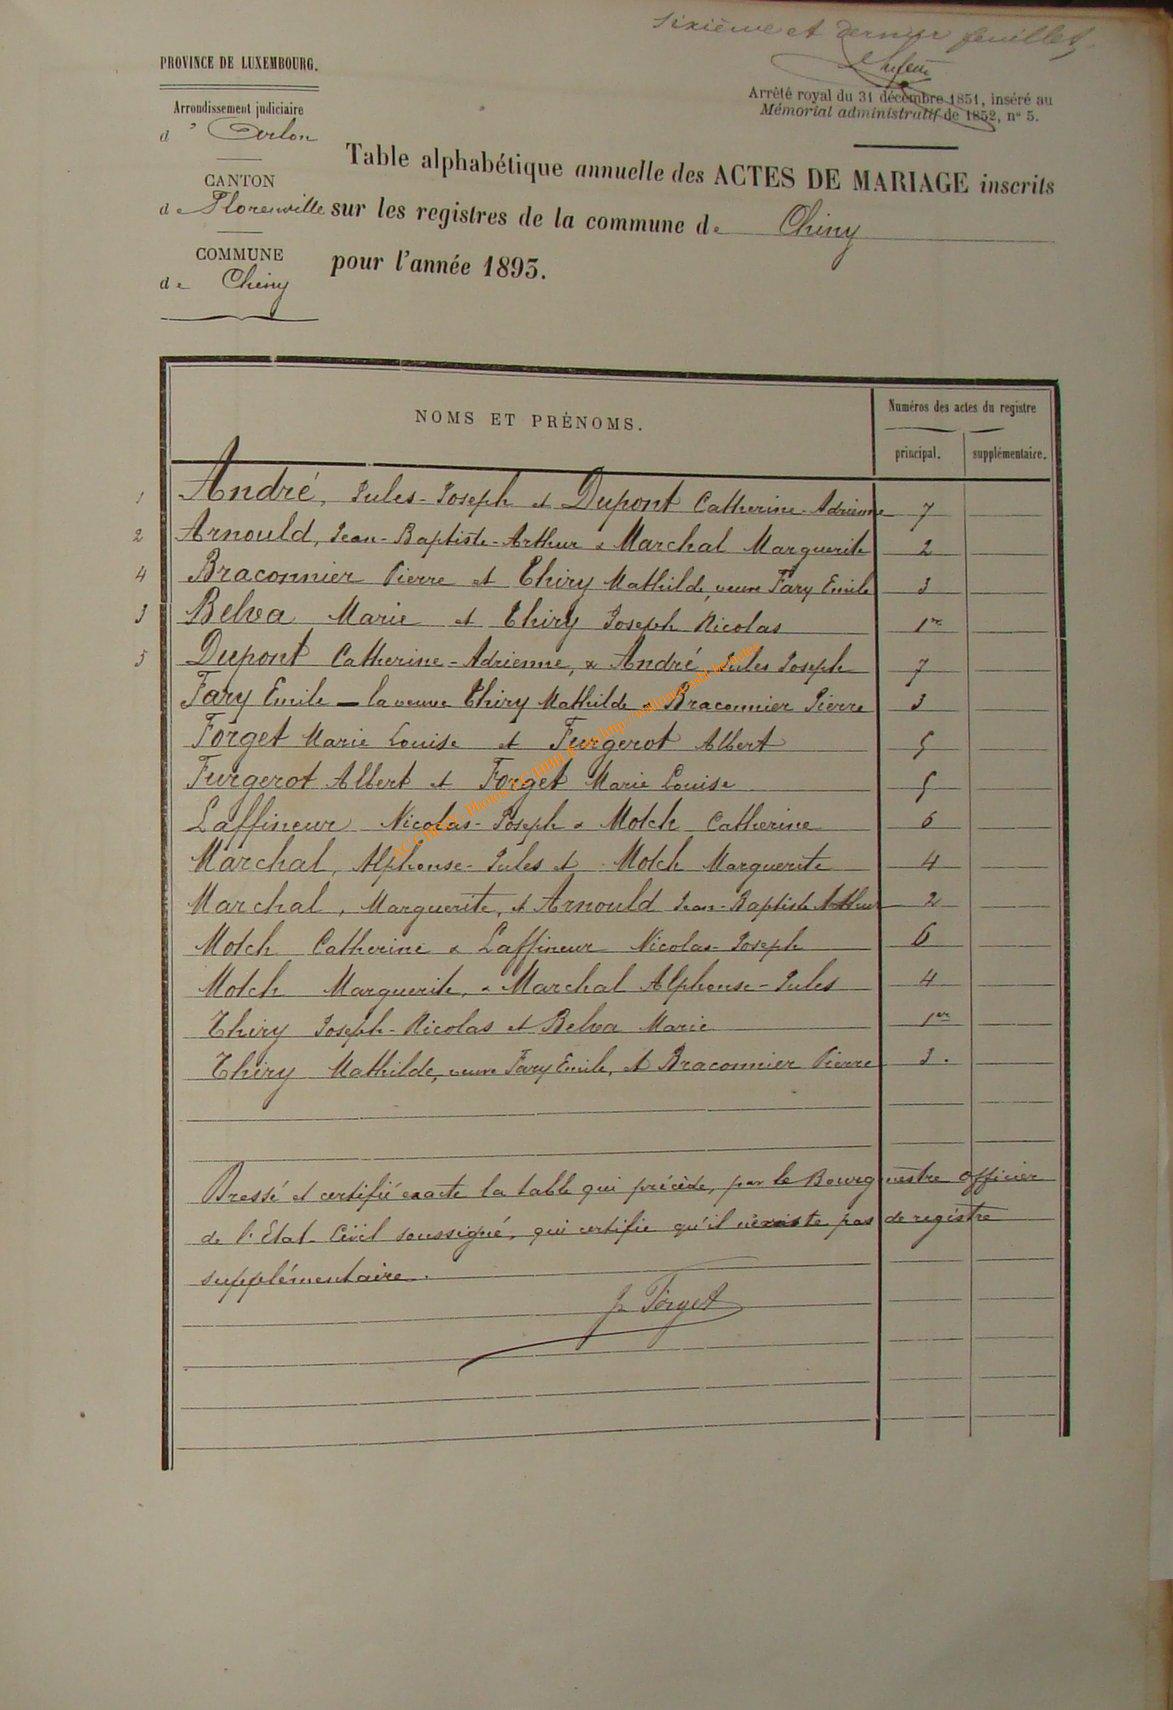 Sixième et dernier feuillet
PROVINCE DE LUXEMBOURG.
Arrêté royal du 31 décembre 1851, inséré au
Mémorial administratif de 1852, n° 5.
Arrondissement judiciaire
d'Arlon
CANTON
de Florenville
COMMUNE
de Chiny
Table alphabétique annuelle des ACTES DE MARIAGE inscrits
sur les registres de la commune de Chiny
pour l'année 1895.
NOMS ET PRÉNOMS.
Numéros des actes du registre
principal. supplémentaire.
1 André, Jules-Joseph et Dupont Catherine-Adrienne 7
2 Arnould, Jean-Baptiste-Arthur & Marchal Marguerite 2
4 Braconnier Pierre et Thiry Mathilde, veuve Fary Emile 3
3 Belva Marie et Thiry Joseph Nicolas 1er
5 Dupont Catherine-Adrienne, & André Jules Joseph 7
Fary Emile — la veuve Thiry Mathilde & Braconnier Pierre 3
Forget Marie Louise et Furgerot Albert 5
Furgerot Albert et Forget Marie Louise 5
Laffineur Nicolas-Joseph & Motch Catherine 6
Marchal, Alphonse-Jules et Motch Marguerite 4
Marchal, Marguerite, et Arnould Jean-Baptiste Arthur 2
Motch Catherine & Laffineur Nicolas-Joseph 6
Motch Marguerite, & Marchal Alphonse-Jules 4
Thiry Joseph-Nicolas et Belva Marie 1er
Thiry Mathilde, veuve Fary Emile, et Braconnier Pierre 3.
Dressé et certifié exacte la table qui précède, par le Bourgmestre officier
de l'Etat-Civil soussigné, qui certifie qu'il n'existe pas de registre
supplémentaire.
J. Forget